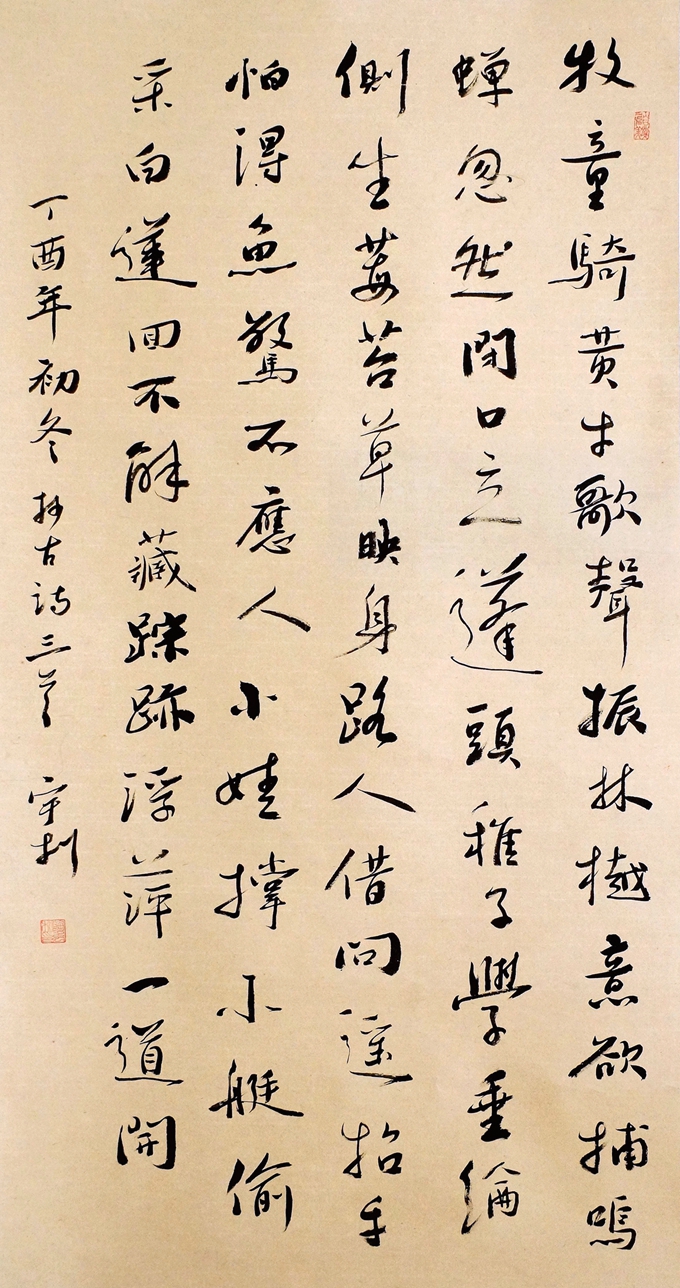 牧童騎黃牛歌聲振林樾意欲捕鳴
蟬忽然閉口立蓬頭稚子學垂綸
側坐莓苔草映身路人借問遥招手
怕得魚驚不應人小娃撑小艇偷
采白蓮回不解藏踪跡浮萍一道開
丁酉年初冬抄古詩三首